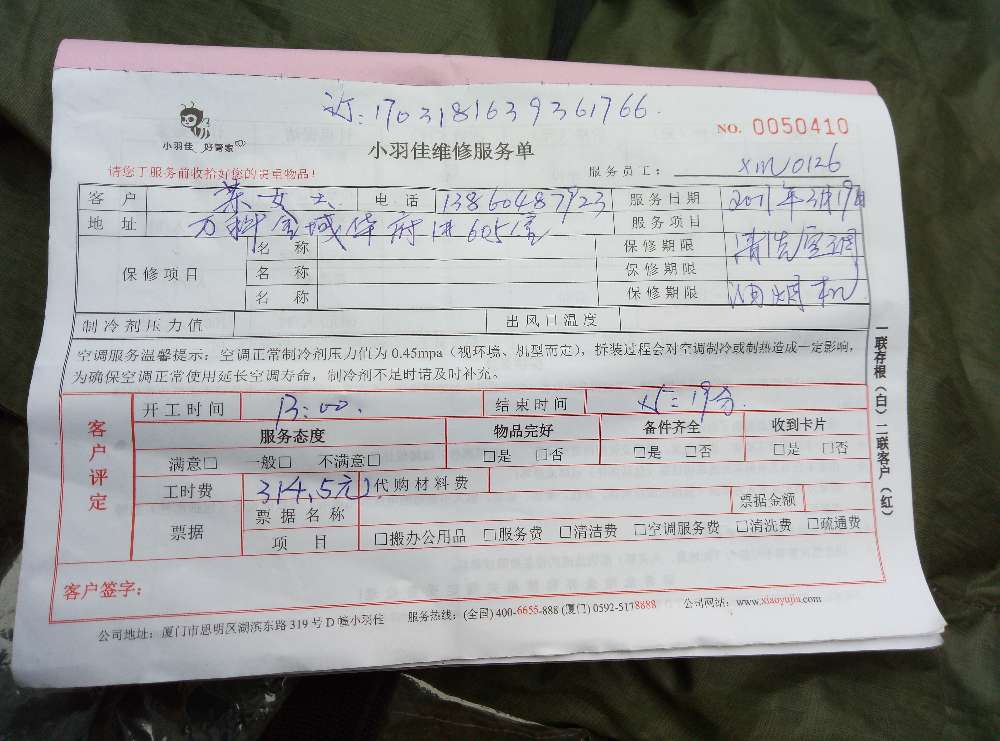 订:1703181639361766.
小羽佳 好管家
NO. 0050410
小羽佳维修服务单
请您于服务前收拾好您的贵重物品!
服务员工: XM0126
客户 女士 电话 13860487923 服务日期 2017年3月19日
地址 万科金域华府 605室 服务项目 清洗空调
保修项目 名称 保修期限
名称 保修期限
名称 保修期限 油烟机
制冷剂压力值 出风口温度
空调服务温馨提示:空调正常制冷剂压力值为0.45mpa(视环境、机型而定),拆装过程会对空调制冷或制热造成一定影响,
为确保空调正常使用延长空调寿命,制冷剂不足时请及时补充。
客户评定
开工时间 13:00. 结束时间 15:19分
服务态度 物品完好 备件齐全 收到卡片
满意□ 一般□ 不满意□ □是 □否 □是 □否 □是 □否
工时费 314.5元 代购材料费
票据 票据名称 票据金额
项目 □搬办公用品 □服务费 □清洁费 □空调服务费 □清洗费 □疏通费
客户签字:
公司地址:厦门市思明区湖滨东路319号D幢小羽佳 服务热线:(全国)400-6655-888 (厦门) 0592-5178888 公司网站:www.xiaoyujia.com
一联存根(白)二联客户(红)